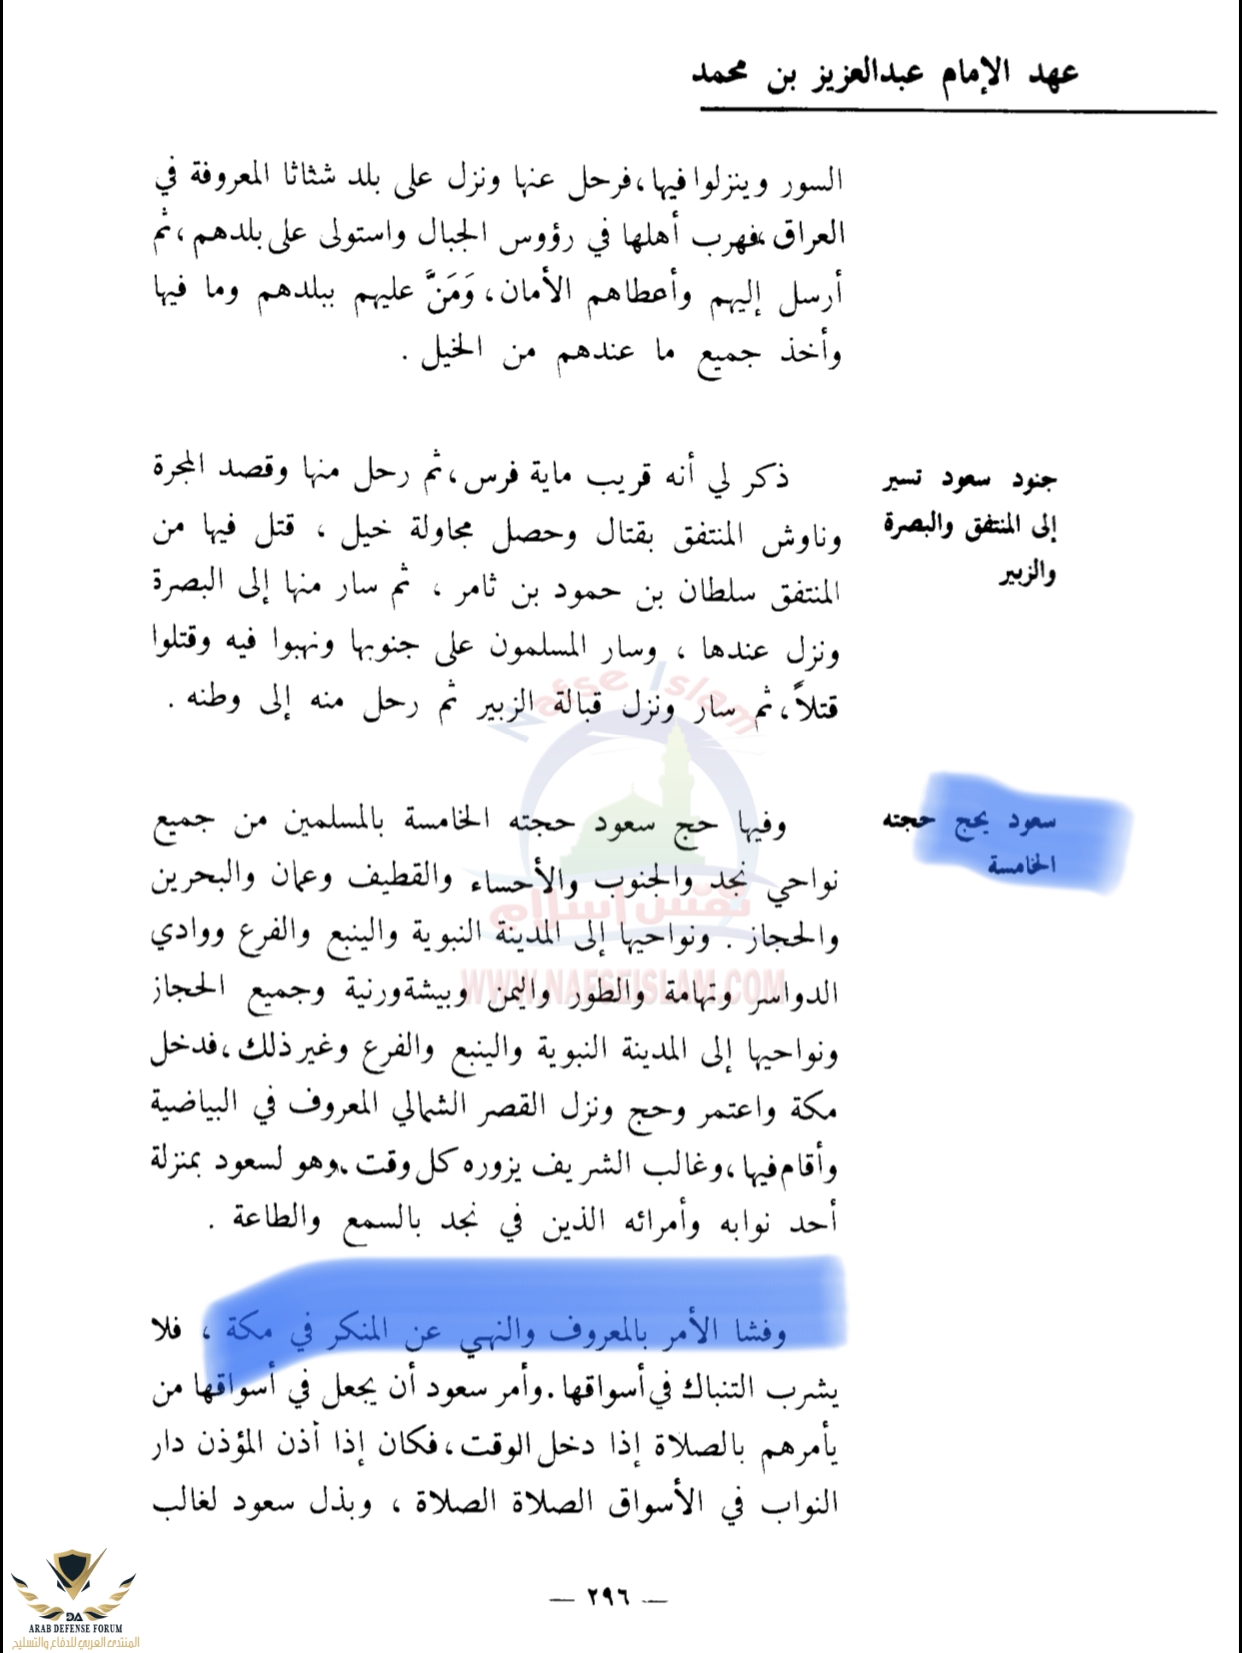 عهد الإمام عبدالعزيز بن محمد
السور وينزلوا فيها، فرحل عنها ونزل على بلد شثاثا المعروفة في
العراق، فهرب أهلها في رؤوس الجبال واستولى على بلدهم، ثم
أرسل إليهم وأعطاهم الأمان، وَمَنَّ عليهم ببلدهم وما فيها
وأخذ جميع ما عندهم من الخيل .
جنود سعود تسير
إلى المنتفق والبصرة
والزبير
ذكر لي أنه قريب ماية فرس، ثم رحل منها وقصد المجرة
وناوش المنتفق بقتال وحصل مجاولة خيل ، قتل فيها من
المنتفق سلطان بن حمود بن ثامر ، ثم سار منها إلى البصرة
ونزل عندها ، وسار المسلمون على جنوبها ونهبوا فيه وقتلوا
قتلاً، ثم سار ونزل قبالة الزبير ثم رحل منه إلى وطنه .
Nafse Islam
سعود يحج حجته
الخامسة
وفيها حج سعود حجته الخامسة بالمسلمين من جميع
نواحي نجد والجنوب والأحساء والقطيف وعمان والبحرين
نفس إسلام
والحجاز . ونواحيها إلى المدينة النبوية والينبع والفرع ووادي
WWW.NAFSEISLAM.COM
الدواسر وتهامة والطور واليمن وبيشة ورنية وجميع الحجاز
ونواحيها إلى المدينة النبوية والينبع والفرع وغير ذلك، فدخل
مكة واعتمر وحج ونزل القصر الشمالي المعروف في البياضية
وأقام فيها، وغالب الشريف يزوره كل وقت. وهو لسعود بمنزلة
أحد نوابه وأمرائه الذين في نجد بالسمع والطاعة .
وفشا الأمر بالمعروف والنهي عن المنكر في مكة ، فلا
يشرب التنباك في أسواقها. وأمر سعود أن يجعل في أسواقها من
يأمرهم بالصلاة إذا دخل الوقت، فكان إذا أذن المؤذن دار
النواب في الأسواق الصلاة الصلاة ، وبذل سعود لغالب
— ٢٩٦ —
DA
ARAB DEFENSE FORUM
المنتدى العربي للدفاع والتسليح